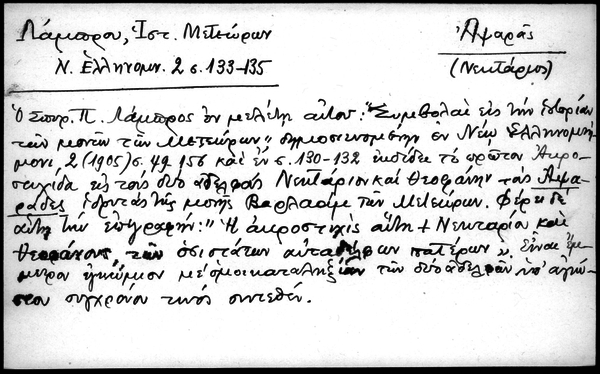 Λάμπρου, Ἱστ. Μετεώρων
Ν. Ἑλληνομν. 2 σ. 133-135
Ἀψαρᾶς
(Νεκτάριος)
Ὁ Σπυρ. Π. Λάμπρος ἐν μελέτῃ αὐτοῦ: "Συμβολαὶ εἰς τὴν ἱστορίαν
τῶν μονῶν τῶν Μετεώρων" δημοσιευομένῃ ἐν Νέῳ Ἑλληνομνή-
μονι 2 (1905) σ. 49 156 καὶ ἐν σ. 130-132 ἐκδίδει τὸ πρῶτον Ἀκρο-
στιχίδα εἰς τοὺς δύο ἀδελφοὺς Νεκτάριον καὶ Θεοφάνην τοὺς Ἀψα-
ράδες τῆς μονῆς Βαρλαὰμ τῶν Μετεώρων. Φέρει δὲ
αὕτη τὴν ἐπιγραφήν: "Ἡ ἀκροστιχὶς αὕτη + Νεκταρίου καὶ
Θεοφάνους, τῶν ὁσιωτάτων αὐταδέλφων πατέρων". Εἶναι ἔμ-
μετρον ἐγκώμιον μὲ ὁμοιοκαταληξίαν τῶν δύο ἀδελφῶν ὑπ' ἀγνώ-
στου συγχρόνου τινός συντεθέν.